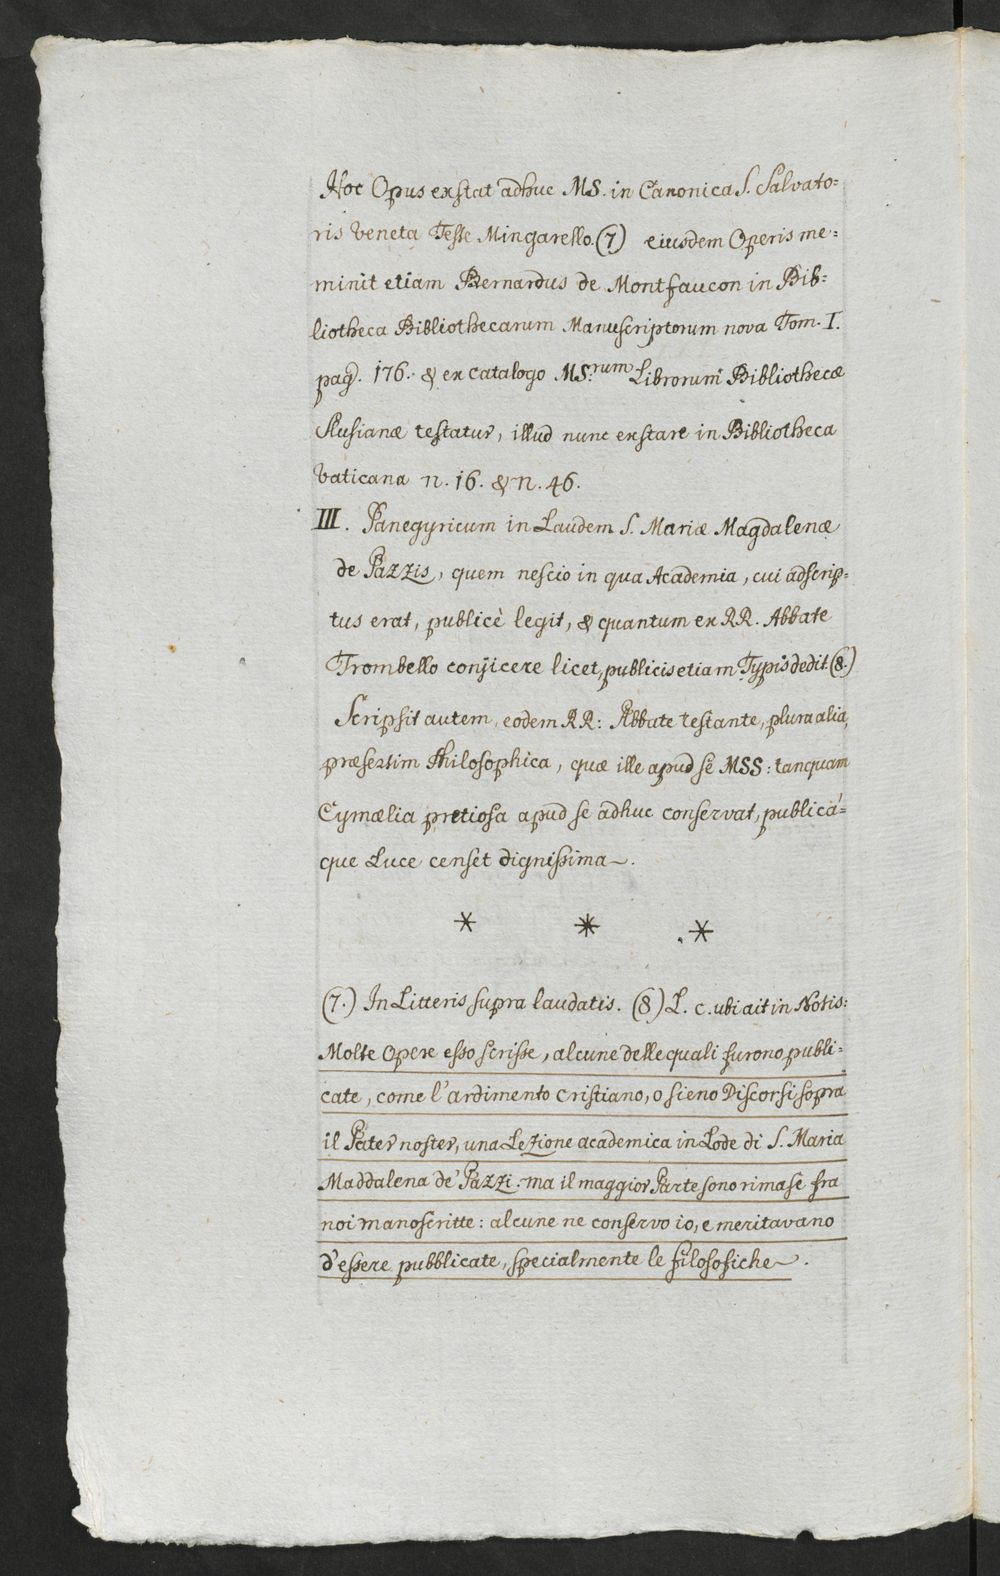 Hoc Opus exstat adhuc MS. in Canonica S. Salvato=
ris Veneta Teste Mingarello. (7) eiusdem Operis me=
minit etiam Bernardus de Montfaucon in Bib=
liotheca Bibliothecarum Manuscriptorum nova Tom. I.
pag. 176. & ex Catalogo MS.rum Librorum Bibliothecæ
Slusianæ testatur, illud nunc exstare in Bibliotheca
Vaticana n. 16. & n. 46.
III. Panegyricum in Laudem S. Mariæ Magdalenæ
de Pazzis, quem nescio in qua Academia, cui adscrip=
tus erat, publicè legit, & quantum ex RR. Abbate
Trombello conjicere licet, publicis etiam Typis dedit (8.)
Scripsit autem, eodem RR: Abbate testante, plura alia,
præsertim Philosophica, quæ ille apud se MSS: tanquam
Cymælia pretiosa apud se adhuc conservat, publicá=
que Luce censet dignissima.
* * *
(7.) In Litteris supra laudatis. (8) L. c. ubi ait in Notis:
Molte Opere esso scrisse, alcune delle quali furono publi=
cate, come l'ardimento Cristiano, o sieno Discorsi sopra
il Pater noster, una Lezione academica in Lode di S. Maria
Maddalena de' Pazzi: ma il maggior Parte sono rimase fra
noi manoscritte: alcune ne conservo io, e meritavano
d'essere pubblicate, specialmente le filosofiche.